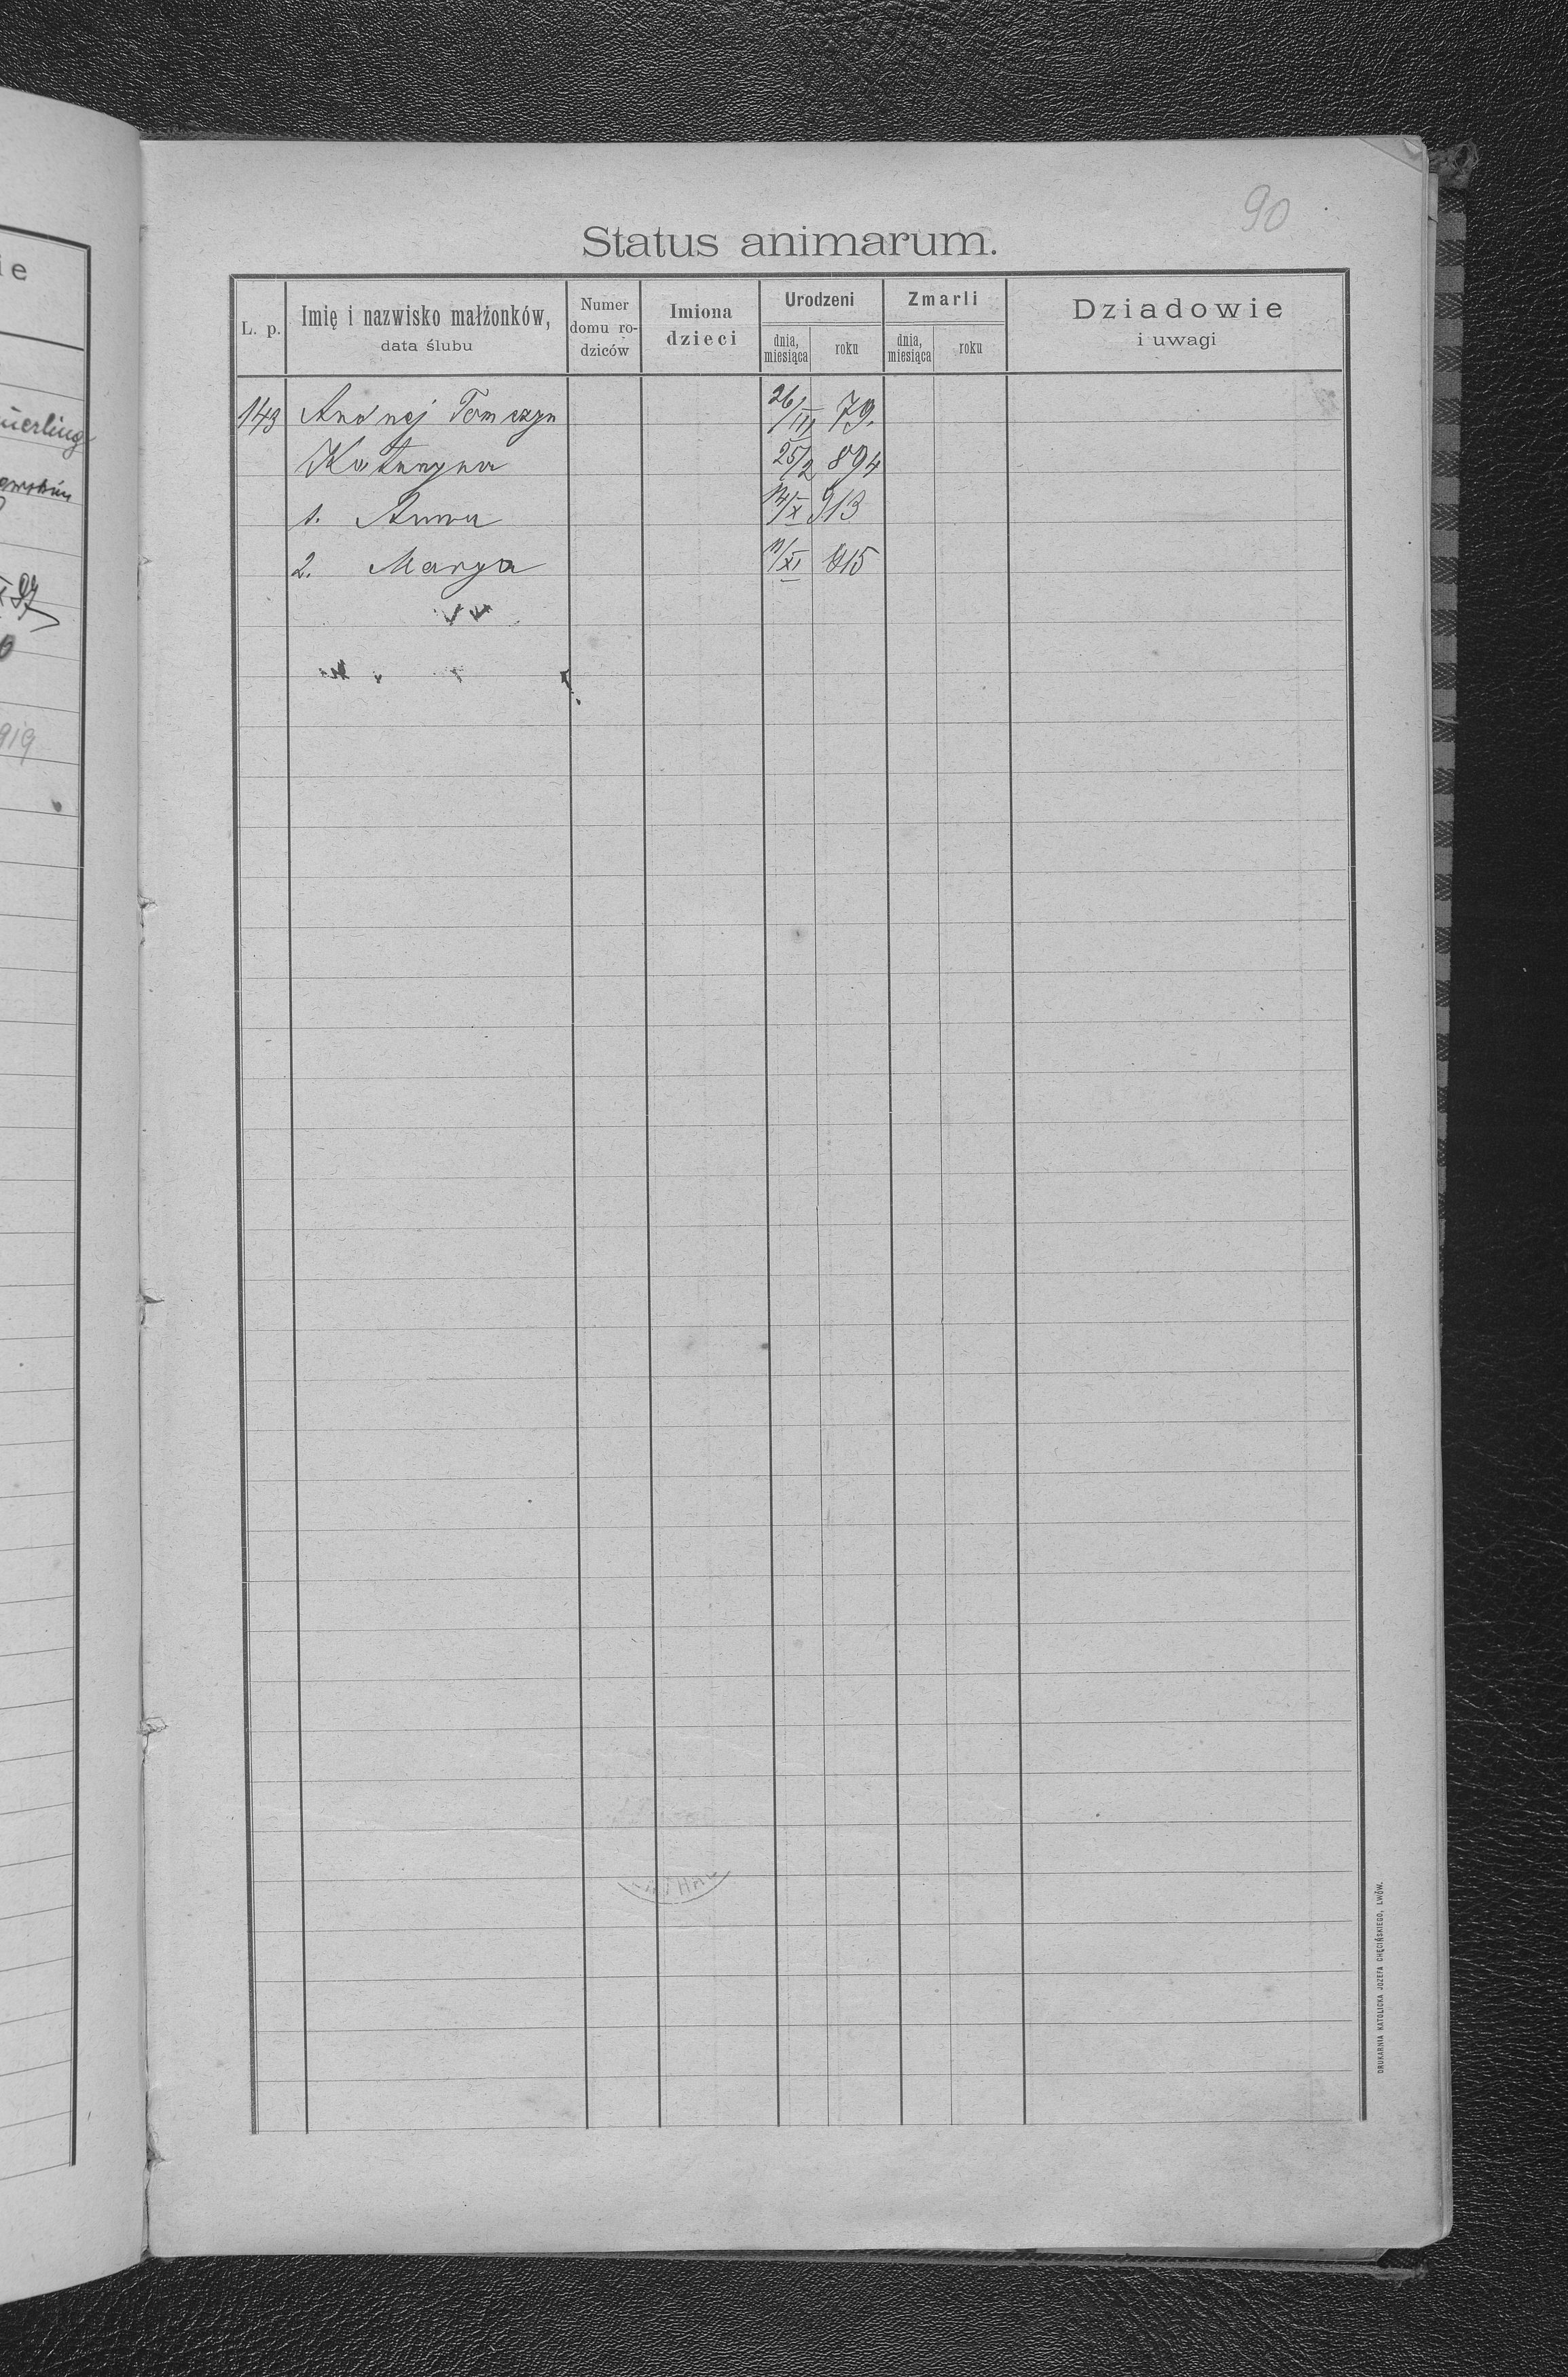 90
Status animarum.
L. p. Imię i nazwisko małżonków, data ślubu Numer domu ro-dziców Imiona dzieci Urodzeni dnia, miesiąca roku Zmarli dnia, miesiąca roku Dziadowie i uwagi
143 Andrzej Tomczyn 26/III 79.
Katarzyna 25/2 894
1. Anna 14/X 913
2. Marya 11/XI 915
DRUKARNIA KATOLICKA JOZEFA CHĘCIŃSKIEGO, LWÓW.
ie
919